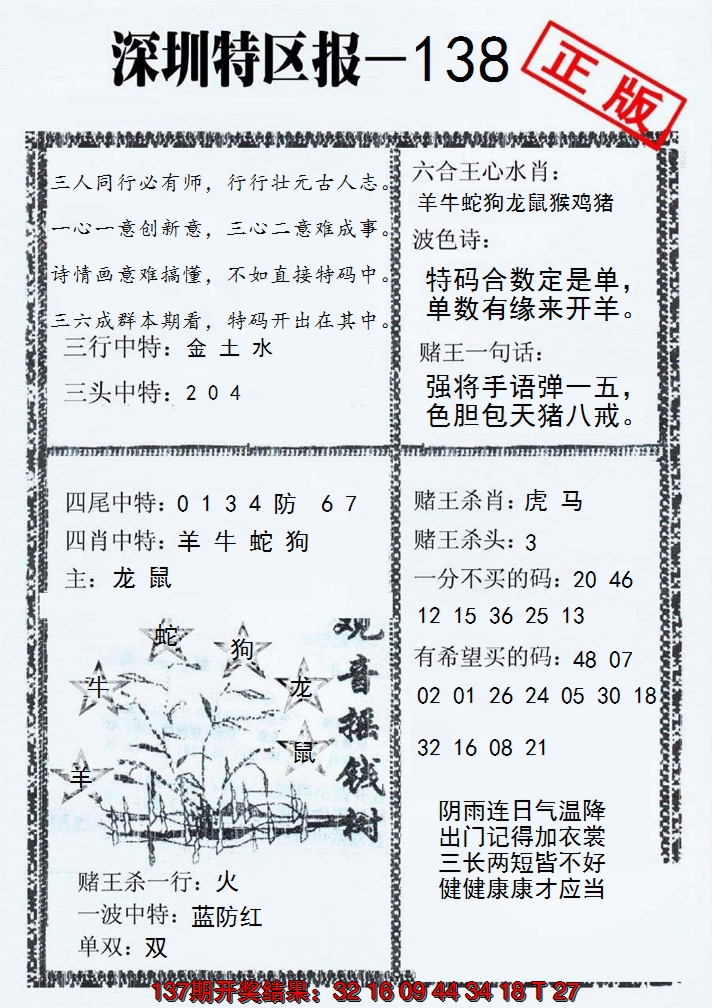 深圳特区报—138
正版
三人同行必有师，行行壮元古人志。
一心一意创新意，三心二意难成事。
诗情画意难搞懂，不如直接特码中。
三六成群本期看，特码开出在其中。
三行中特：金 土 水
三头中特：2 0 4
六合王心水肖：
羊牛蛇狗龙鼠猴鸡猪
波色诗：
特码合数定是单，
单数有缘来开羊。
赌王一句话：
强将手语弹一五，
色胆包天猪八戒。
四尾中特：0 1 3 4 防 6 7
四肖中特：羊 牛 蛇 狗
主：龙 鼠
蛇
狗
牛
龙
鼠
羊
观音摇钱树
赌王杀一行：火
一波中特：蓝防红
单双：双
赌王杀肖：虎 马
赌王杀头：3
一分不买的码：20 46
12 15 36 25 13
有希望买的码：48 07
02 01 26 24 05 30 18
32 16 08 21
阴雨连日气温降
出门记得加衣裳
三长两短皆不好
健健康康才应当
137期开奖结果：32 16 09 44 34 18 T 27